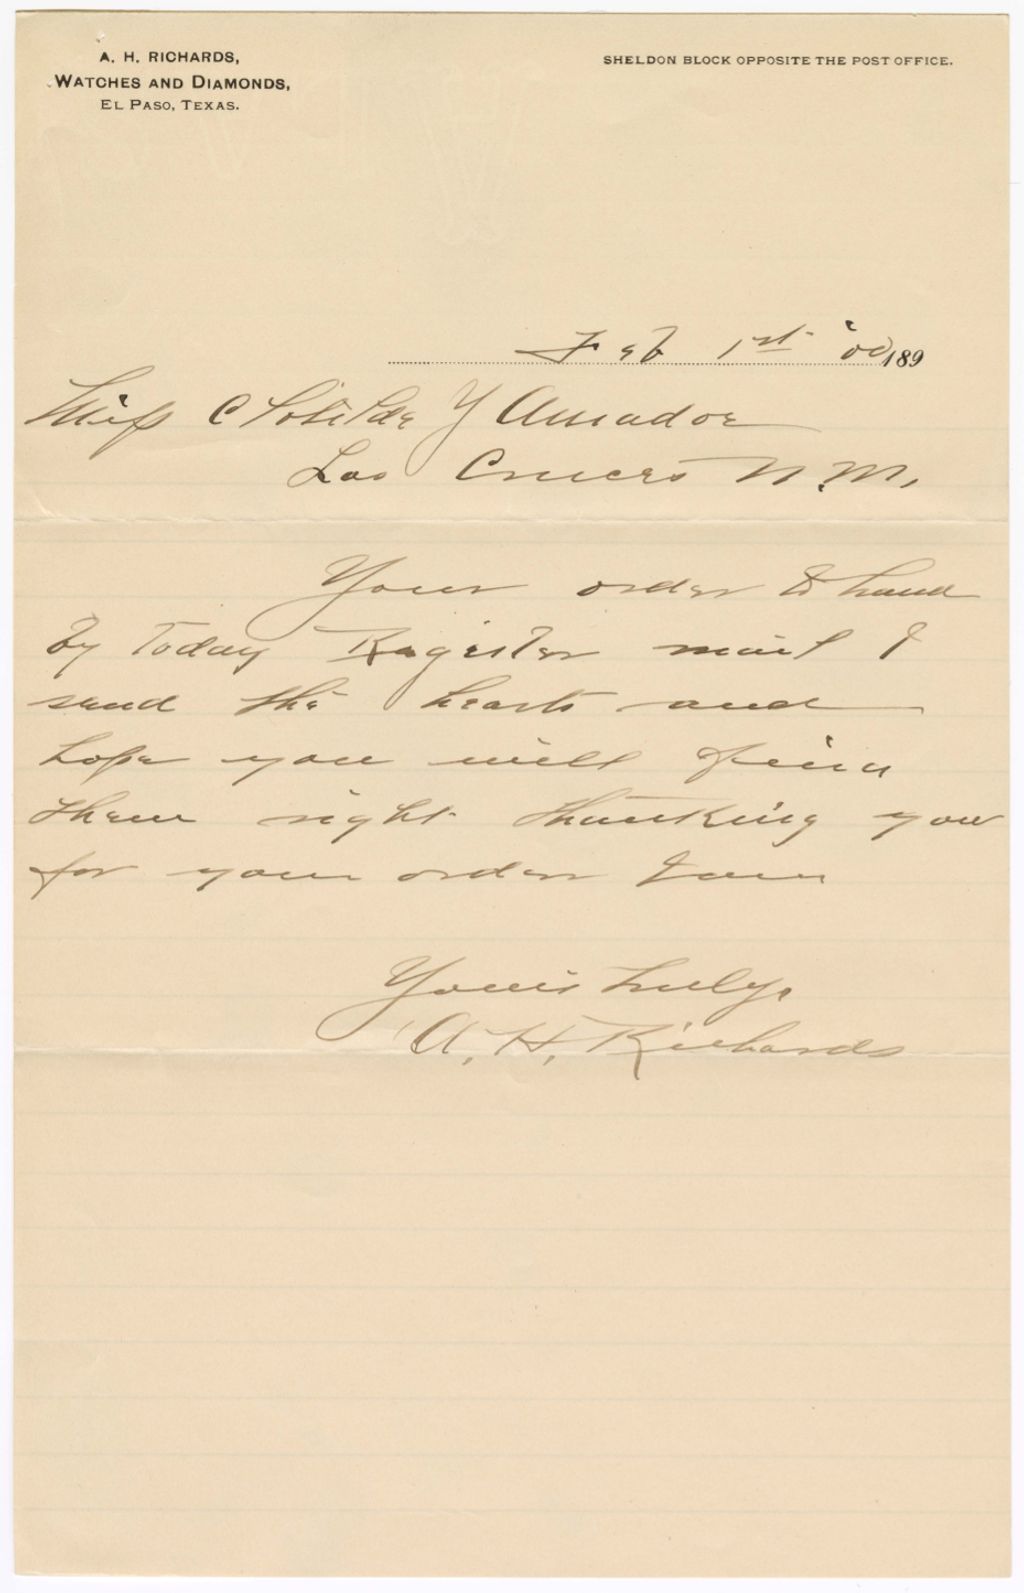 A. H. RICHARDS,
WATCHES AND DIAMONDS,
EL PASO, TEXAS.
SHELDON BLOCK OPPOSITE THE POST OFFICE.
Feb 1st '00 189
Miss Clotilde Y Amador
Las Cruces N.M.
Your order to hand
by Today Register mail I
send the hearts and
hope you will find
them right thanking you
for your order I am
Yours truly,
A. H. Richards